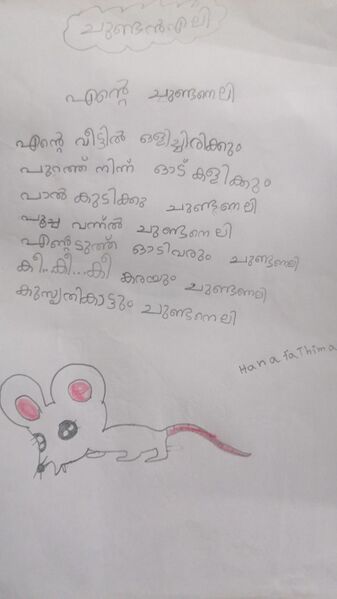 ചുണ്ടൻഎലി
എന്റെ ചുണ്ടണെലി
എന്റെ വീട്ടിൽ ഒളിച്ചിരിക്കും
പുറത്ത് നിന്ന് ഓട് കളിക്കും
പാൽ കുടിക്കു ചുണ്ടണലി
പൂച്ച വന്ൽ ചുണ്ടനെലി
എൻ്റടുത്ത് ഓടിവരും ചുണ്ടണലി
കീ..കീ...കീ കരയും ചുണ്ടണലി
കുസൃതികാട്ടും ചുണ്ടനെലി
Hana faThima